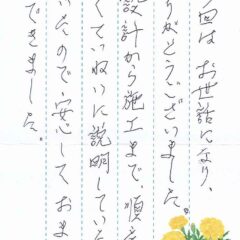 回は お世話になり、
りがとうございました。
設計から施工まで、順序
くていねいに説明していた
いたので、安心して おま
できました。